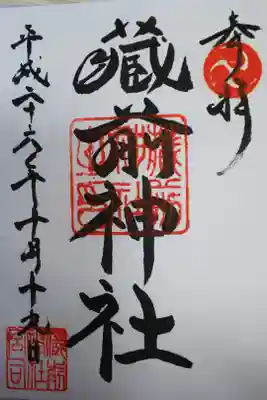 奉拝
蔵前神社
平成二十六年十月十九日